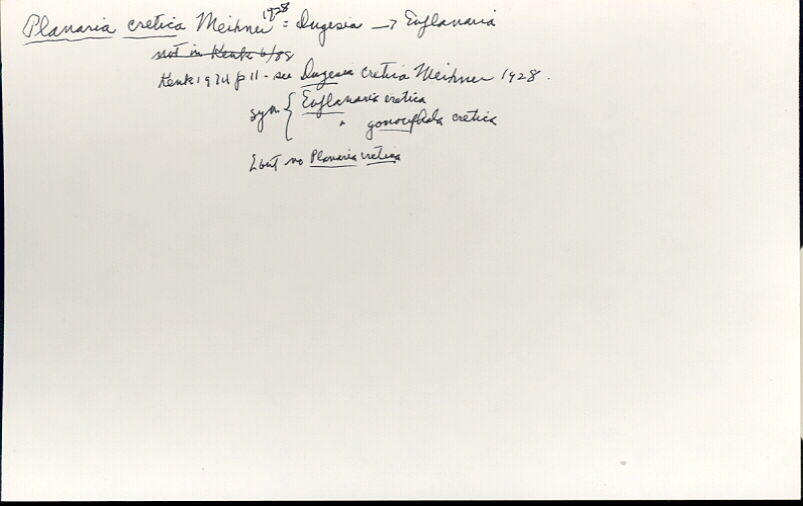 Planaria cretica Meixner 1928 = Dugesia → Euplanaria
not in Kenk 6/88
Kenk 1974 p 11 - see Dugesia cretica Meixner 1928.
syn { Euplanaria cretica
" gonocephala cretica
but no Planaria cretica